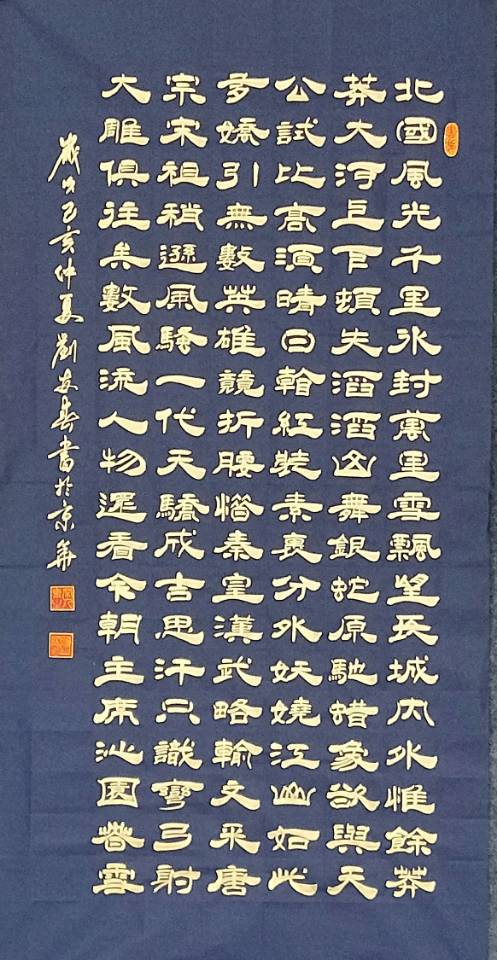 北國風光千里冰封萬里雪飄望長城内外惟餘莽
莽大河上下頓失滔滔山舞銀蛇原馳蜡象欲與天
公試比高須晴日看紅裝素裹分外妖嬈江山如此
多嬌引無數英雄競折腰惜秦皇漢武略輸文采唐
宗宋祖稍遜風騷一代天驕成吉思汗只識彎弓射
大雕俱往矣數風流人物還看今朝主席沁園春雪
歲次己亥仲夏劉書於京華